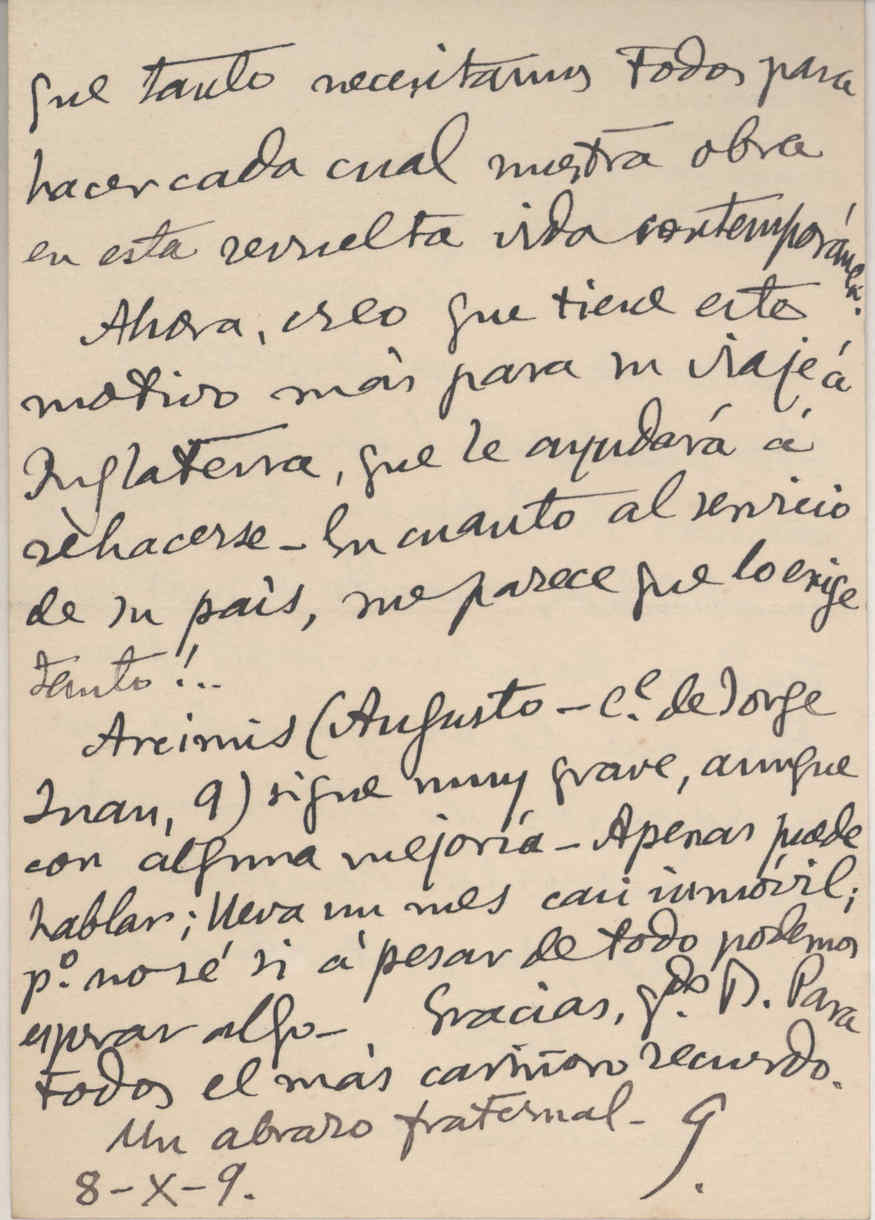 que tanto necesitamos todos para
hacer cada cual nuestra obra
en esta revuelta vida contemporánea.
Ahora, creo que tiene este
motivo más para su viaje á
Inglaterra, que le ayudará á
rehacerse – En cuanto al servicio
de su país, me parece que lo exige
tanto!..
Arcimis (Augusto – c.e de Jorge
Juan, 9) sigue muy grave, aunque
con alguna mejoría – Apenas puede
hablar; lleva un mes casi inmóvil;
p.o no sé si á pesar de todo podemos
esperar algo – Gracias, q.do D. Para
todos el más cariñoso recuerdo.
Un abrazo fraternal – G.
8 – X – 9.